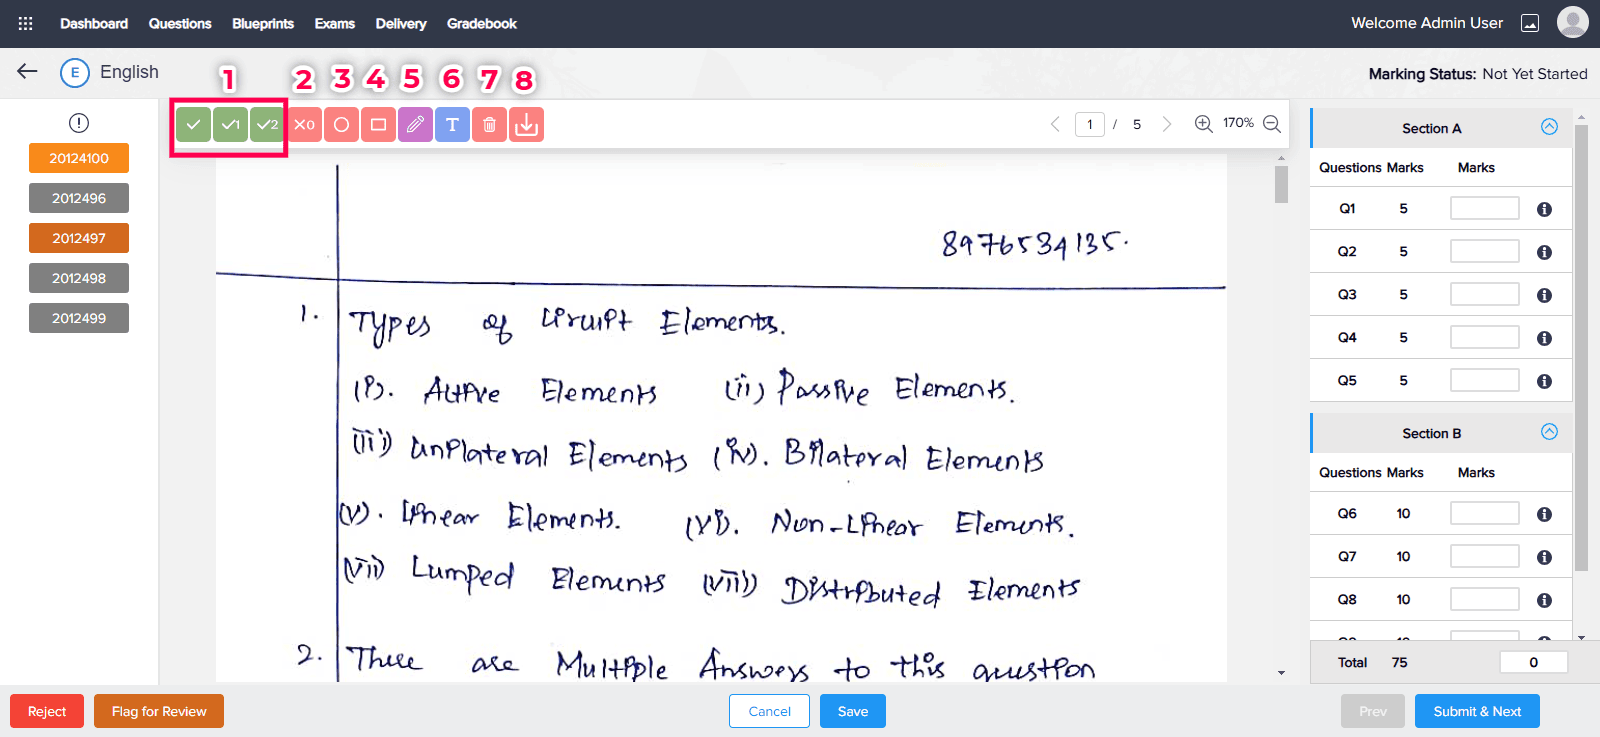 Dashboard Questions Blueprints Exams Delivery Gradebook
Welcome Admin User
E English
Marking Status: Not Yet Started
1 2 3 4 5 6 7 8
1 2 X0 T
1 / 5 170%
20124100
2012496
2012497
2012498
2012499
8976534135.
1. Types of Circuit Elements.
(i). Active Elements (ii) Passive Elements.
(iii) Unilateral Elements (iv). Bilateral Elements
(v). Linear Elements. (vi). Non-Linear Elements.
(vii) Lumped Elements (viii) Distributed Elements
2. There are Multiple Answers to this question
Section A
Questions Marks Marks
Q1 5
Q2 5
Q3 5
Q4 5
Q5 5
Section B
Questions Marks Marks
Q6 10
Q7 10
Q8 10
Total 75 0
Reject Flag for Review Cancel Save Prev Submit & Next